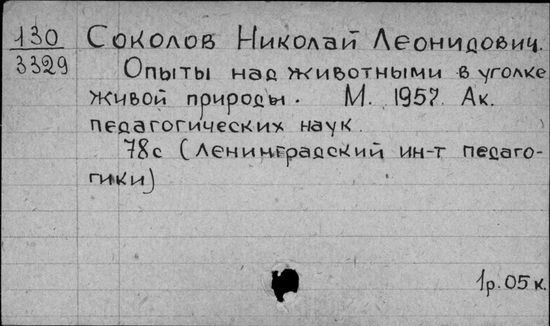 130 Соколов Николай Леонидович.
3329 Опыты над животными в уголке
живой природы. М. 1957. Ак.
педагогических наук.
78с (Ленинградский ин-т педаго-
гики)
1р. 05 к.